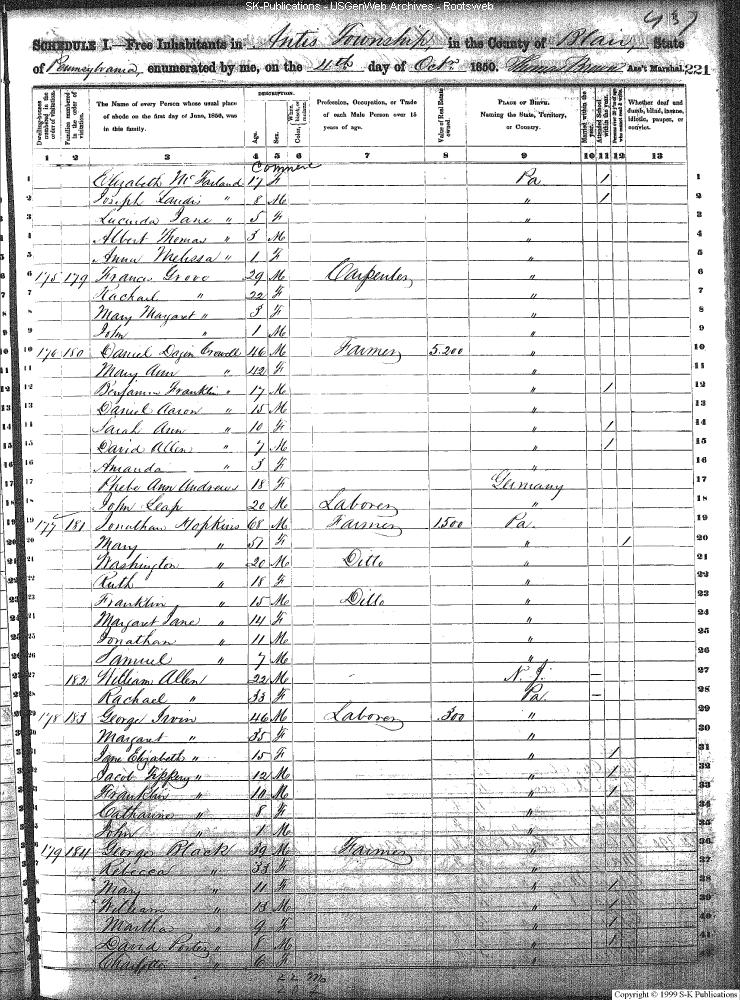 SK-Publications - USGenWeb Archives - Rootsweb
437
SCHEDULE I.—Free Inhabitants in Antis Township, in the County of Blair, State
of Pennsylvania, enumerated by me, on the 4th day of Octr 1850. Ass't Marshal. 221
DESCRIPTION.
Dwelling-houses numbered in the order of visitation.
Families numbered in the order of visitation.
The Name of every Person whose usual place of abode on the first day of June, 1850, was in this family.
Age.
Sex.
Color, White, black, or mulatto.
Profession, Occupation, or Trade of each Male Person over 15 years of age.
Value of Real Estate owned.
PLACE OF BIRTH. Naming the State, Territory, or Country.
Married within the year.
Attended School within the year.
Persons over 20 y'rs of age who cannot read & write.
Whether deaf and dumb, blind, insane, idiotic, pauper, or convict.
1 2 3 4 5 6 7 8 9 10 11 12 13
1 Elizabeth McFarland 17 F Pa / 1
2 Joseph Landis " 8 M " / 2
3 Lucinda Jane " 5 F " 3
4 Albert Thomas " 3 M " 4
5 Anna Melissa " 1 F " 5
6 175 179 Francis Grove 29 M Carpenter " 6
7 Rachael " 22 F " 7
8 Mary Margaret " 3 F " 8
9 John " 1 M " 9
10 176 180 Daniel Crowell 46 M Farmer 5.200 " 10
11 Mary Ann " 42 F " 11
12 Benjamin Franklin " 17 M " / 12
13 Daniel Aaron " 15 M " 13
14 Sarah Ann " 10 F " / 14
15 David Allen " 7 M " / 15
16 Amanda " 3 F " 16
17 Phebe Ann Andrews 18 F Germany 17
18 John Leap 20 M Laborer " 18
19 177 181 Jonathan Hopkins 68 M Farmer 1500 Pa. 19
20 Mary " 51 F " / 20
21 Washington " 20 M Ditto " 21
22 Ruth " 18 F " 22
23 Franklin " 15 M Ditto " 23
24 Margaret Jane " 14 F " 24
25 Jonathan " 11 M " 25
26 Samuel " 7 M " 26
27 182 William Allen 22 M N. J. – 27
28 Rachael " 33 F Pa – 28
29 178 183 George Irvin 46 M Laborer 300 " 29
30 Margaret " 35 F " 30
31 Jane Elizabeth " 15 F " / 31
32 Jacob " 12 M " / 32
33 Franklin " 10 M " / 33
34 Catharine " 8 F " 34
35 John " 1 M " 35
36 179 184 George Black 39 M Farmer " 36
37 Rebecca " 33 F " 37
38 Mary " 11 F " / 38
39 William " 13 M " / 39
40 Martha " 9 F " / 40
41 David Porter " 8 M " / 41
42 Charlotte " 6 F " 42
Copyright © 1999 S-K Publications